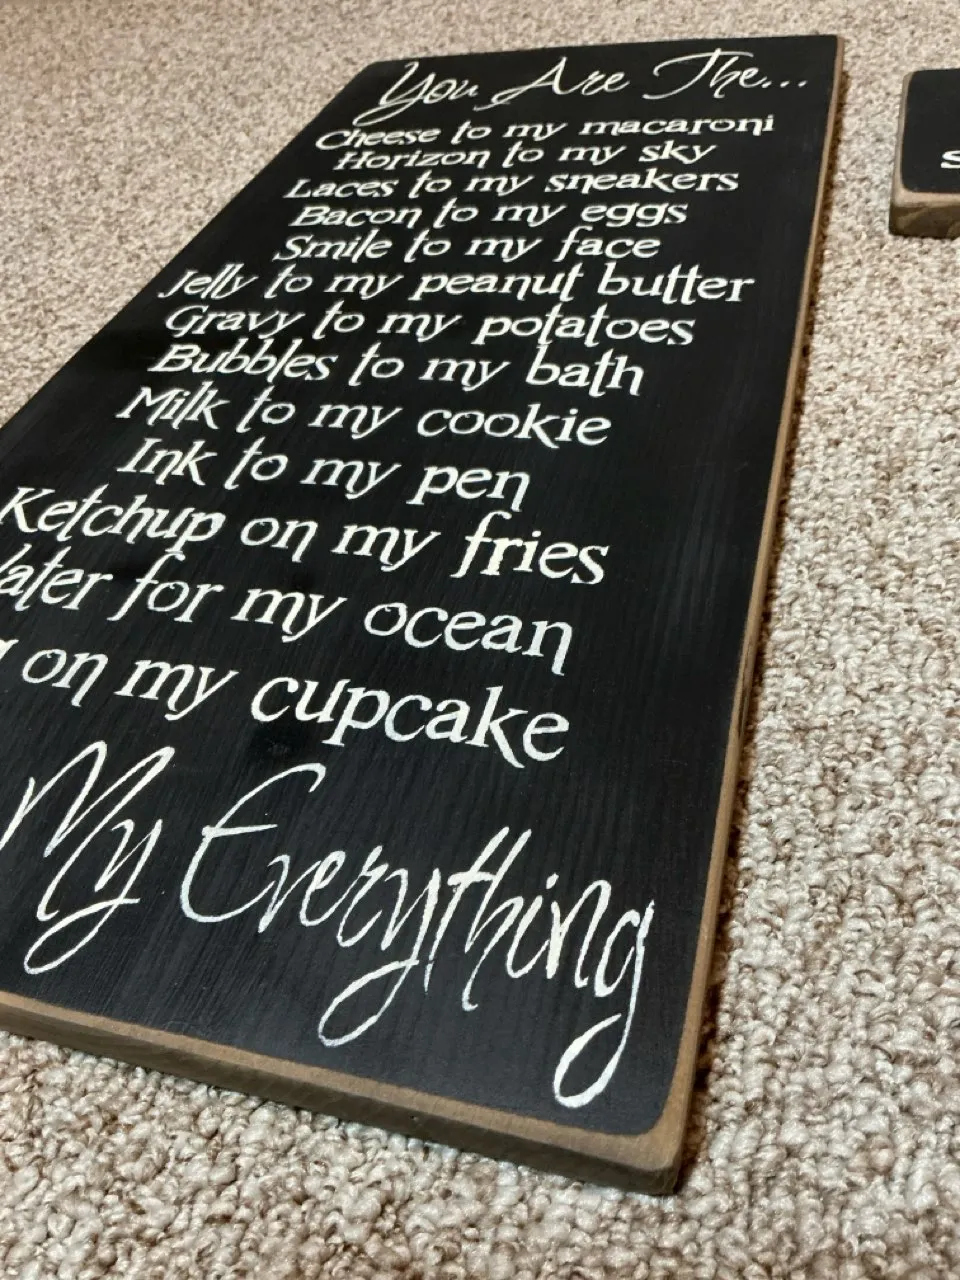 You Are The...
Cheese to my macaroni
Horizon to my sky
Laces to my sneakers
Bacon to my eggs
Smile to my face
Jelly to my peanut butter
Gravy to my potatoes
Bubbles to my bath
Milk to my cookie
Ink to my pen
Ketchup on my fries
for my ocean
on my cupcake
My Everything